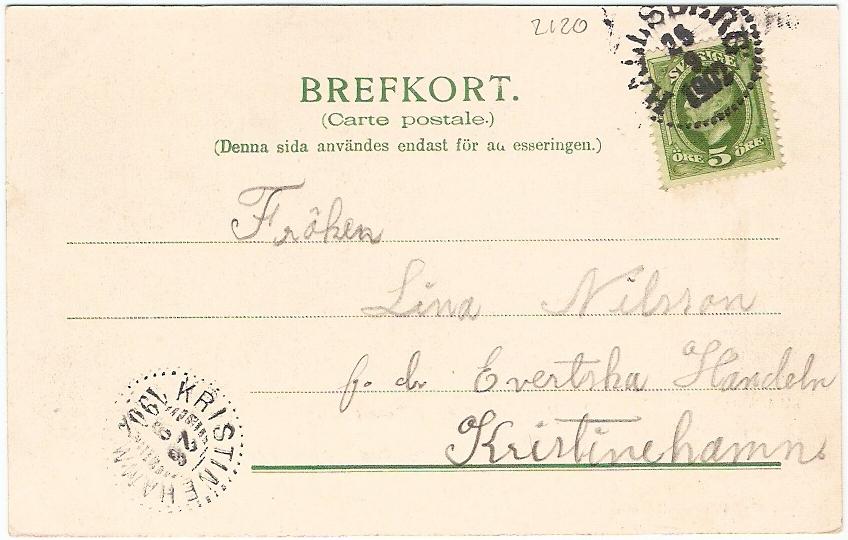 2120
HALLSBERG
26
9
1902
SVERIGE
ÖRE 5 ÖRE
BREFKORT.
(Carte postale.)
(Denna sida användes endast för ad esseringen.)
Fröken
Lina Nilsson
Evertska Handeln
Kristinehamn.
KRISTINEHAMN
1902